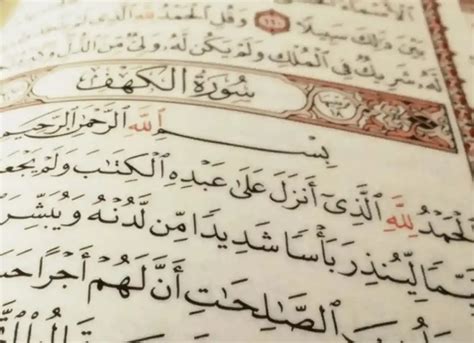 بَيْنَ ذَٰلِكَ سَبِيلًا ١١٠ وَقُلِ ٱلْحَمْدُ لِلَّهِ ٱلَّذِى
لَّهُۥ شَرِيكٌ فِى ٱلْمُلْكِ وَلَمْ يَكُن لَّهُۥ وَلِىٌّ مِّنَ ٱلذُّلِّ
سُورَةُ ٱلْكَهْفِ
بِسْمِ ٱللَّهِ ٱلرَّحْمَٰنِ ٱلرَّحِيمِ
ٱلْحَمْدُ لِلَّهِ ٱلَّذِىٓ أَنزَلَ عَلَىٰ عَبْدِهِ ٱلْكِتَٰبَ وَلَمْ يَجْعَ
يِّمًا لِّيُنذِرَ بَأْسًا شَدِيدًا مِّن لَّدُنْهُ وَيُبَشِّرَ
ٱلصَّٰلِحَٰتِ أَنَّ لَهُمْ أَجْرًا حَسَ